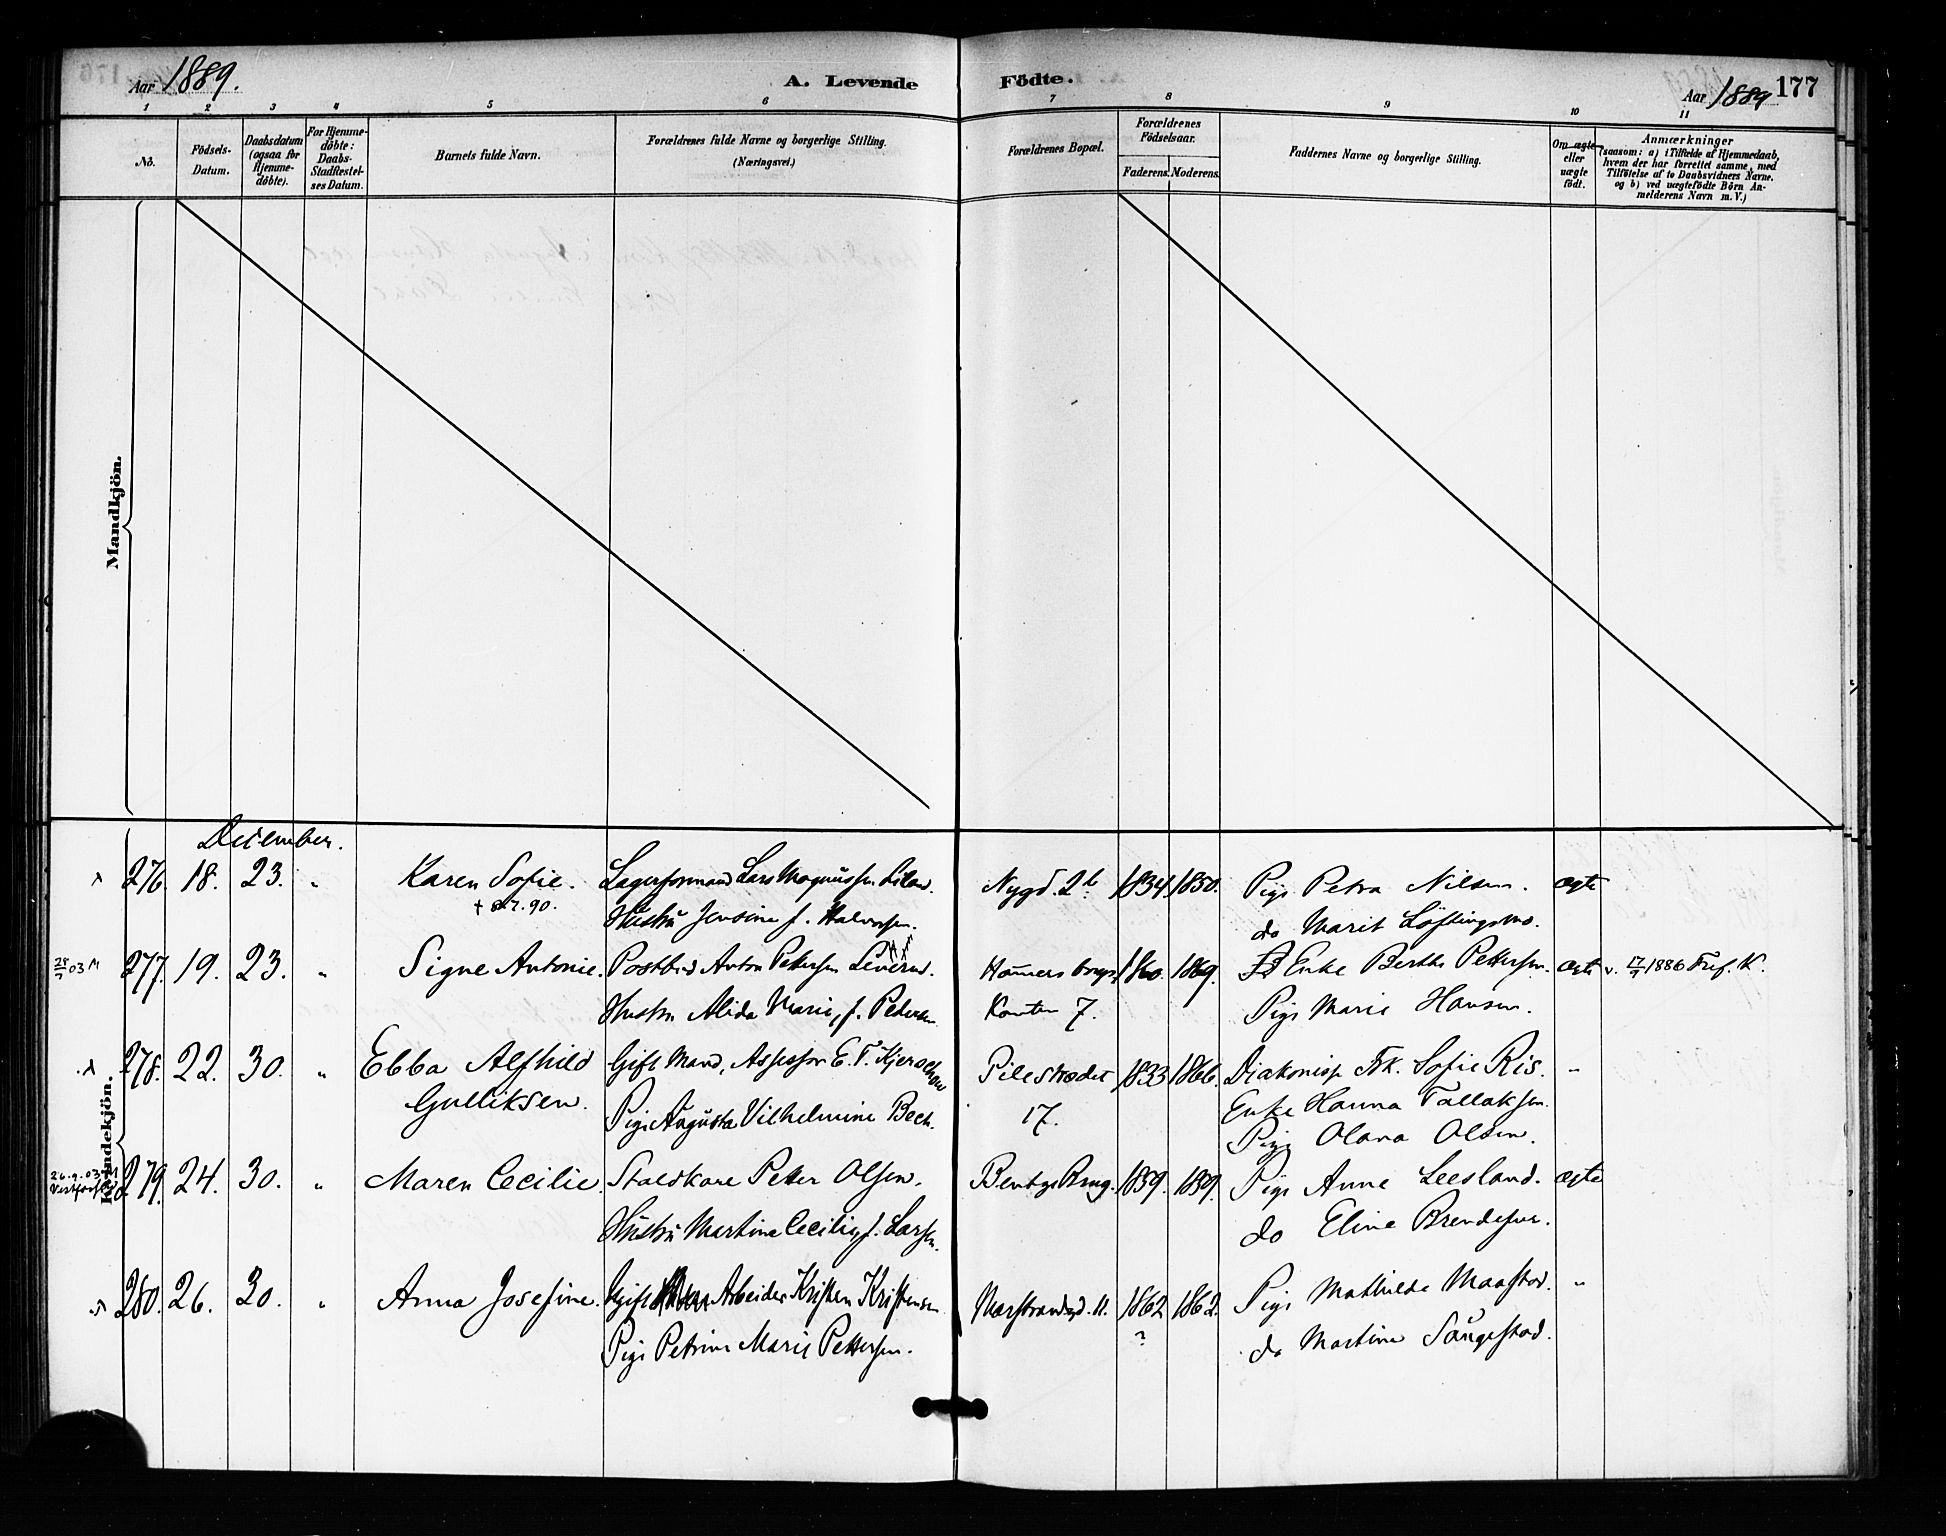 Aar 1889.
A. Levende Födte.
Aar 1889 177
1 2 3 4 5 6 7 8 9 10 11
No.
Födsels-
Datum.
Daabsdatum
(ogsaa for
Hjemme-
döbte).
For Hjemme-
döbte:
Daabs-
Stadfæstel-
ses Datum.
Barnets fulde Navn.
Forældrenes fulde Navne og borgerlige Stilling.
(Næringsvei.)
Forældrenes Bopæl.
Forældrenes
Födselsaar.
Faderens. Moderens.
Faddernes Navne og borgerlige Stilling.
Om ægte
eller
uægte
födt.
Anmærkninger
(saasom: a) i Tilfælde af Hjemmedaab,
hvem der har forrettet samme, med
Tilföielse af to Daabsvidners Navne.
og b) ved uægtefödte Börn An-
melderens Navn m. V.)
Mandkjön.
Kvindekjön.
December.
276. 18. 23. " Karen Sofie. Lagerformand Lars Magnussen Nygd. 1834. 1850. Pige Petra Nilsen. ægte
Hustru Jensine f. Halvorsen. do Marit
277. 19. 23. " Signe Antonie. Postbud Anton Pettersen Hammersborg 1869. Enke Berthe Pettersen. ægte
Hustru Alida Marie, f. Pedersen Kanten 7. Pige Marie Hansen.
278. 22. 30. " Ebba Alfhild Gift Mand, Assessor E. F. Kjerschow Pilestrædet 1833 1866. Diakonisse Frk. Sofie Riis. "
Gulliksen. Pige Augusta Vilhelmine Bech. 17. Enke Hanna Tallaksen.
Pige Olava Olsen.
26.9.03 M
279. 24. 30. " Maren Cecilie. Staldkarl Peter Olsen. Bentse Brug. 1859. 1859. Pige Anne Leesland. ægte
Hustru Martine Cecilie, f. Larsen. do Eline
280. 26. 30. " Anna Josefine. Gift Arbeider Kristen Kristensen Marstrandgd. 11. 1862 1862. Pige Mathilde "
Pige Petrine Marie Pettersen. ? do Martine